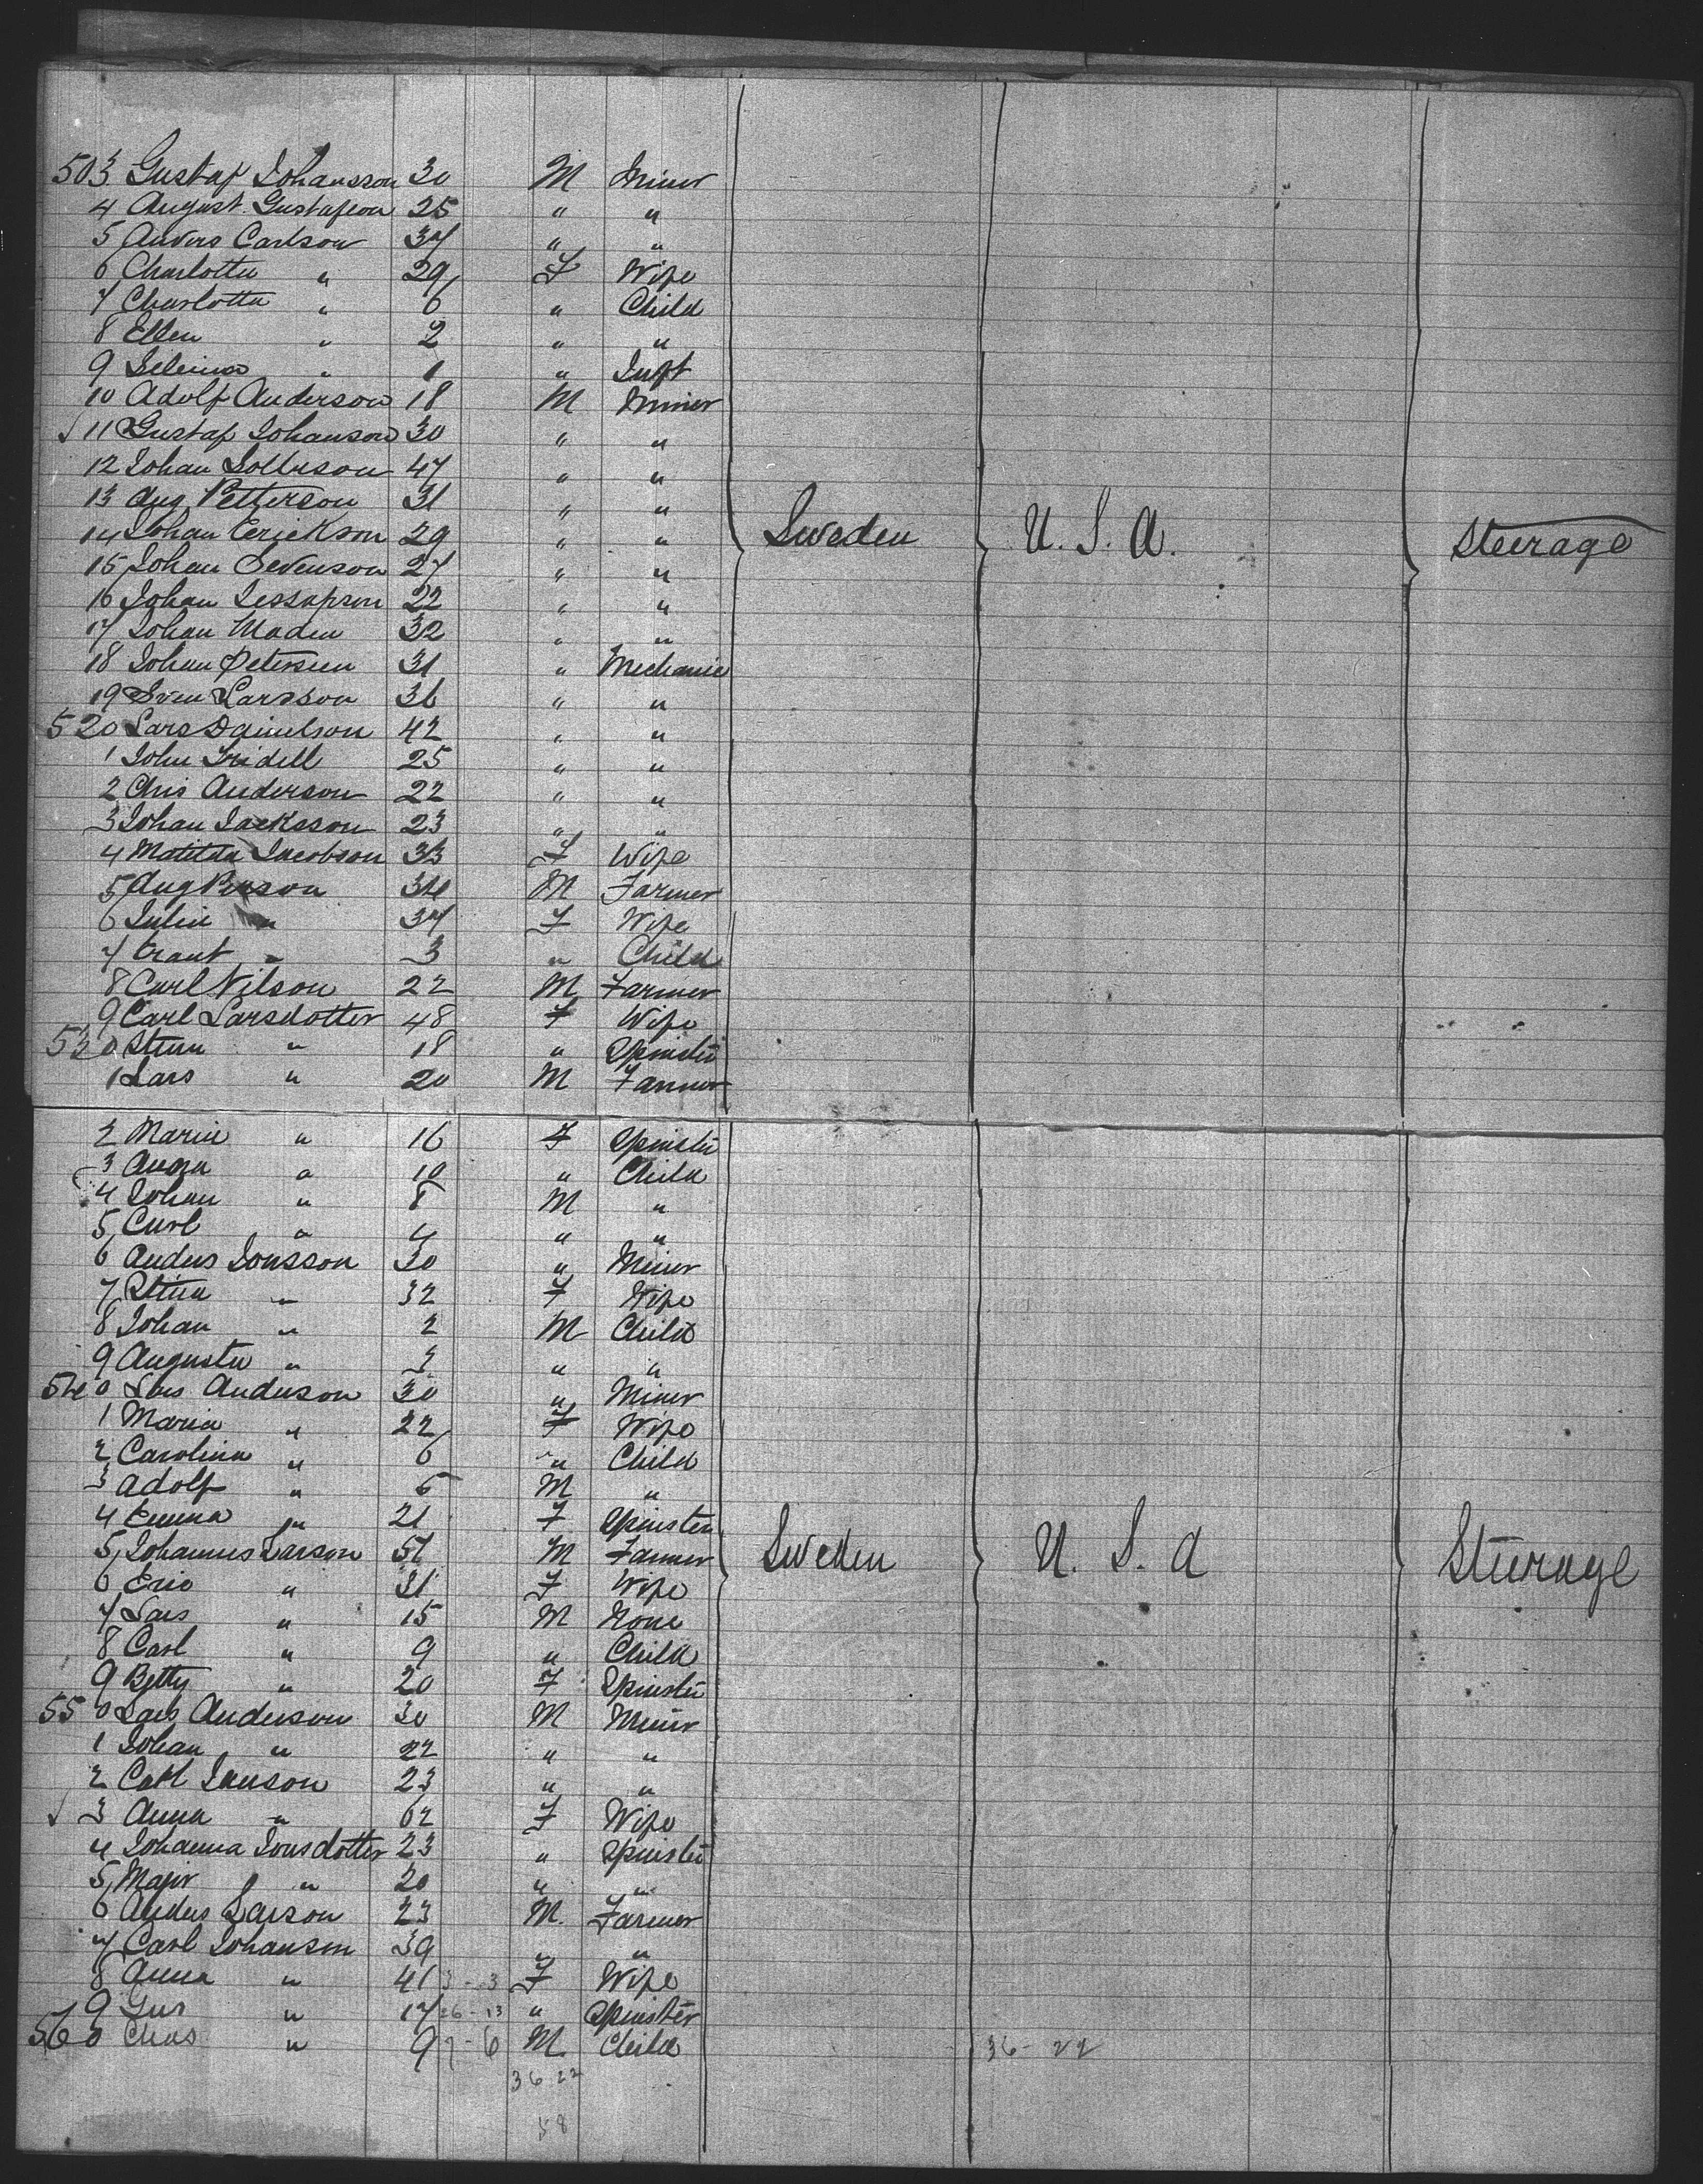 503 Gustaf Johansson 30 M Miner
4 August Gustafson 25 " "
5 Anders Carlson 37 " "
6 Charlotta " 29 F Wife
7 Charlotta " 6 " Child
8 Ellen " 2 " "
9 Selima " 1 " Inft
10 Adolf Anderson 18 M Miner
√ 11 Gustaf Johanson 30 " "
12 Johan 47 " "
13 Aug Petterson 31 " "
14 Johan Erickson 29 " "
15 Johan Svenson 27 " "
16 Johan 22 " "
17 Johan Maden 32 " "
18 Johan Petersen 31 " Mechanic
19 Sven Larsson 36 " "
520 Lars Danielson 42 " "
Sweden U.S.A. Steerage
1 John Fridell 25 " "
2 Chris Anderson 22 " "
3 Johan Jacksson 23 " "
4 Matilda Jacobson 33 F Wife
5 Aug Person 34 M Farmer
6 Julia " 37 F Wife
7 Ernst " 3 " Child
8 Carl Nilson 22 M Farmer
9 Carl Larsdotter 48 F Wife
530 Stina " 18 " Spinster
1 Lars " 20 M Farmer
2 Maria " 16 F Spinster
3 Anna " 10 " Child
4 Johan " 8 M "
5 Carl " 4 " "
6 Anders Jonsson 30 " Miner
7 Stina " 32 F Wife
8 Johan " 2 M Child
9 Augusta " 3 " "
540 Lars Anderson 30 " Miner
1 Maria " 22 F Wife
2 Carolina " 6 " Child
3 Adolf " 5 M "
4 Emma " 21 F Spinster
5 Johannes Larson 51 M Farmer
6 Eric " 31 F Wife
7 Lars " 15 M None
8 Carl " 9 " Child
9 Betty " 20 F Spinster
550 Lars Anderson 30 M Miner
Sweden U. S. A Steerage
1 Johan " 22 " "
2 Carl Janson 23 " "
√ 3 Anna " 62 F Wife
4 Johanna Jonsdotter 23 " Spinster
5 Major " 20 " "
6 Anders Larson 23 M. Farmer
7 Carl Johanson 39 " "
8 Anna " 41 3-3 F Wife
9 Gus " 17 26-13 " Spinster
560 Chas " 9 7-6 M Child
36 22 36-22
58